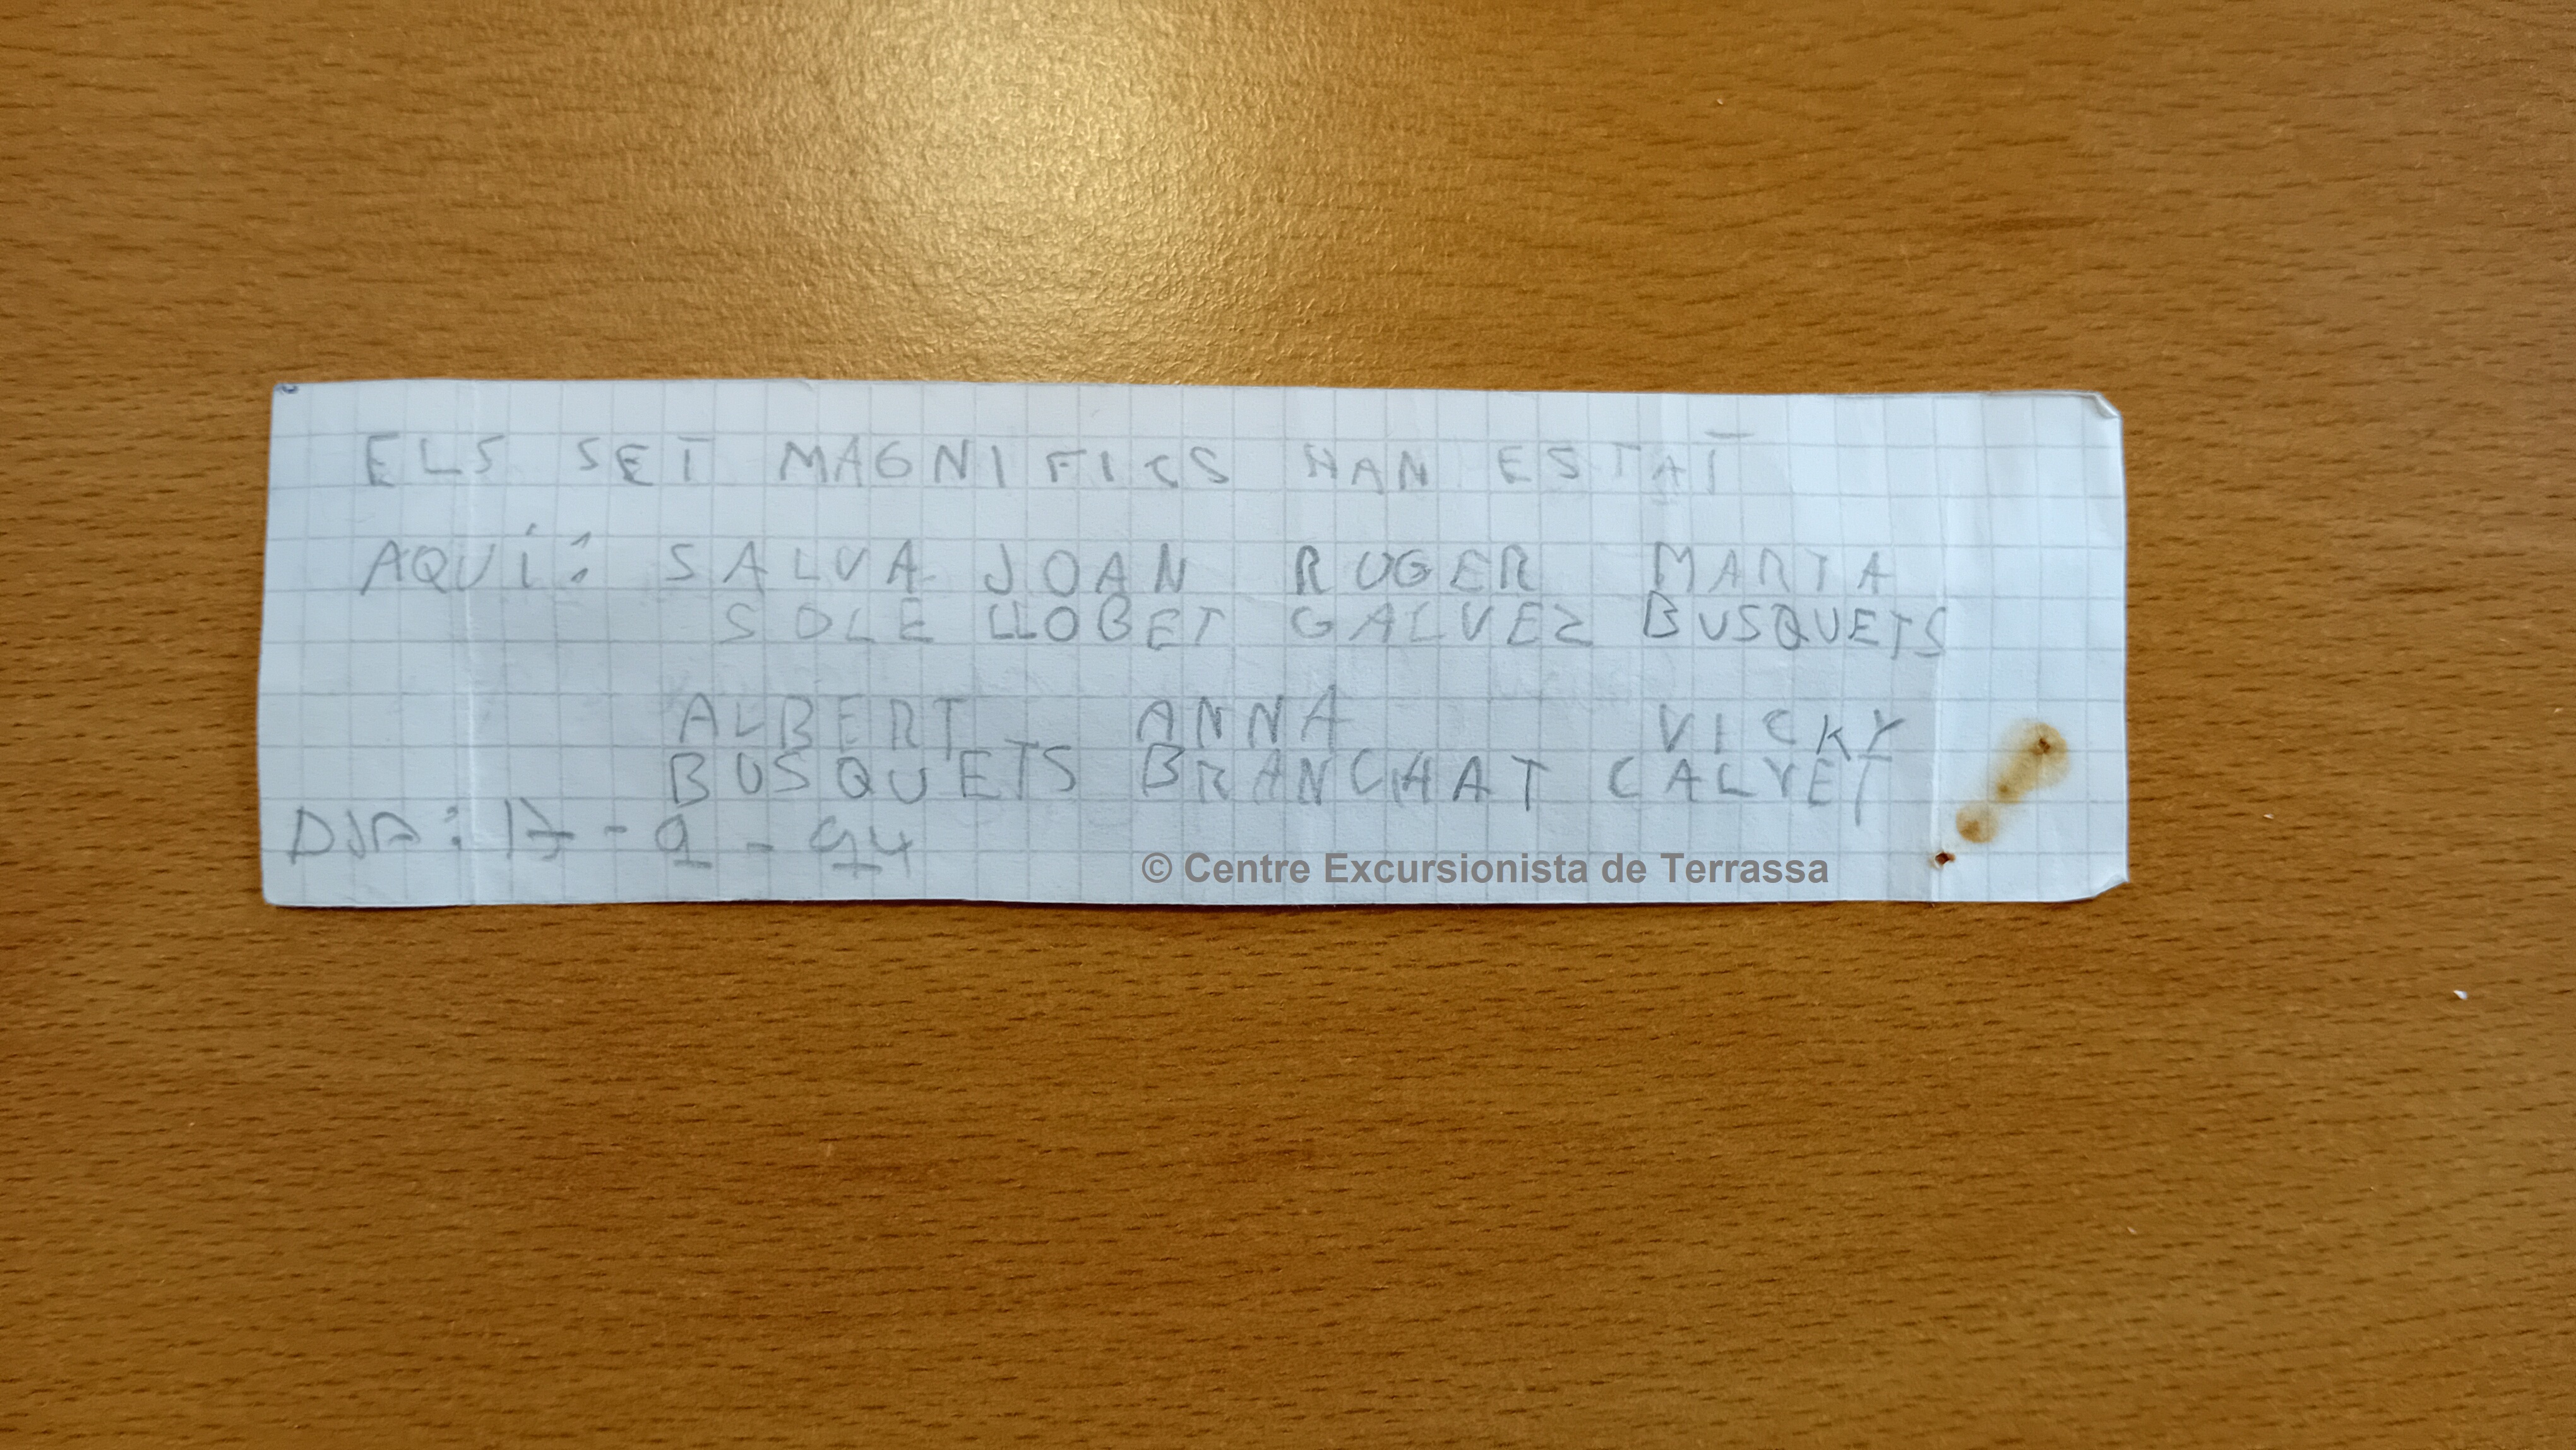 ELS SET MAGNIFICS HAN ESTAT
AQUÍ: SALVA JOAN ROGER MARTA
SOLE LLOBET GALVEZ BUSQUETS
ALBERT ANNA VICKY
BUSQUETS BRANCHAT CALVET
DIA: 17-9-94
© Centre Excursionista de Terrassa